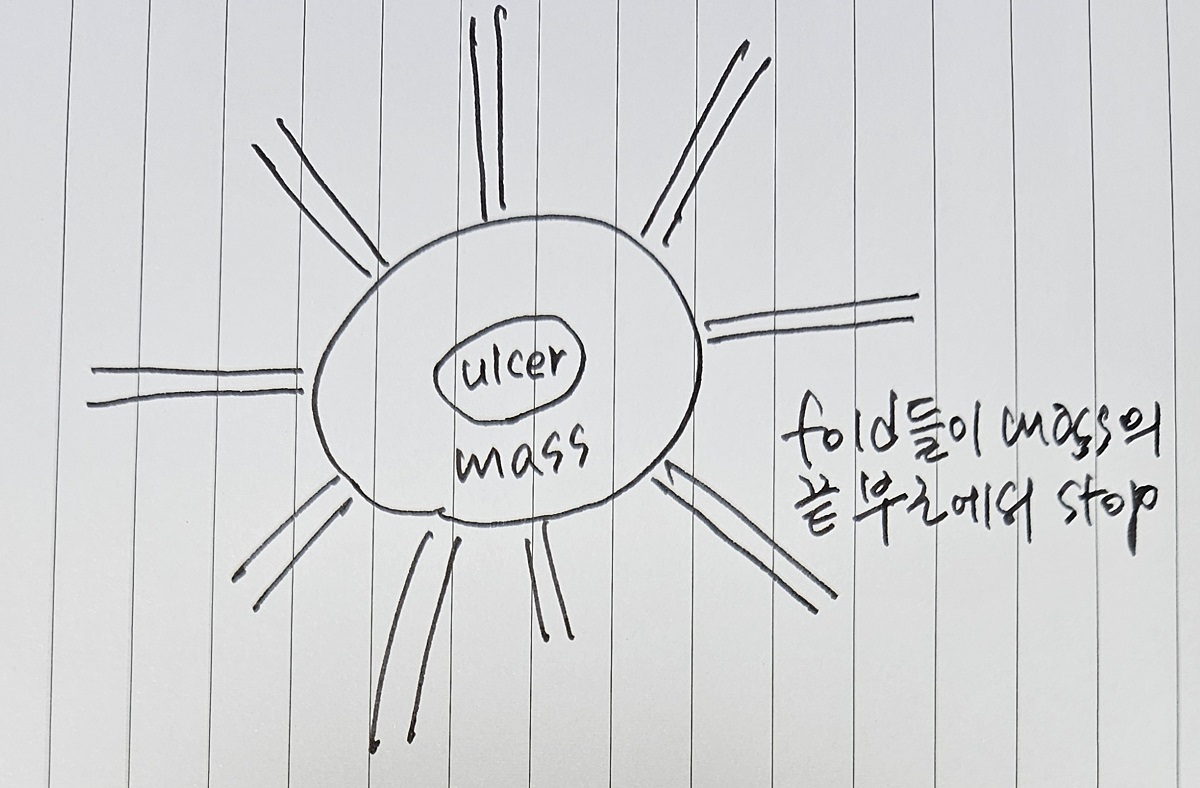 ulcer
mass
fold들이 mass의
끝 부근에서 stop